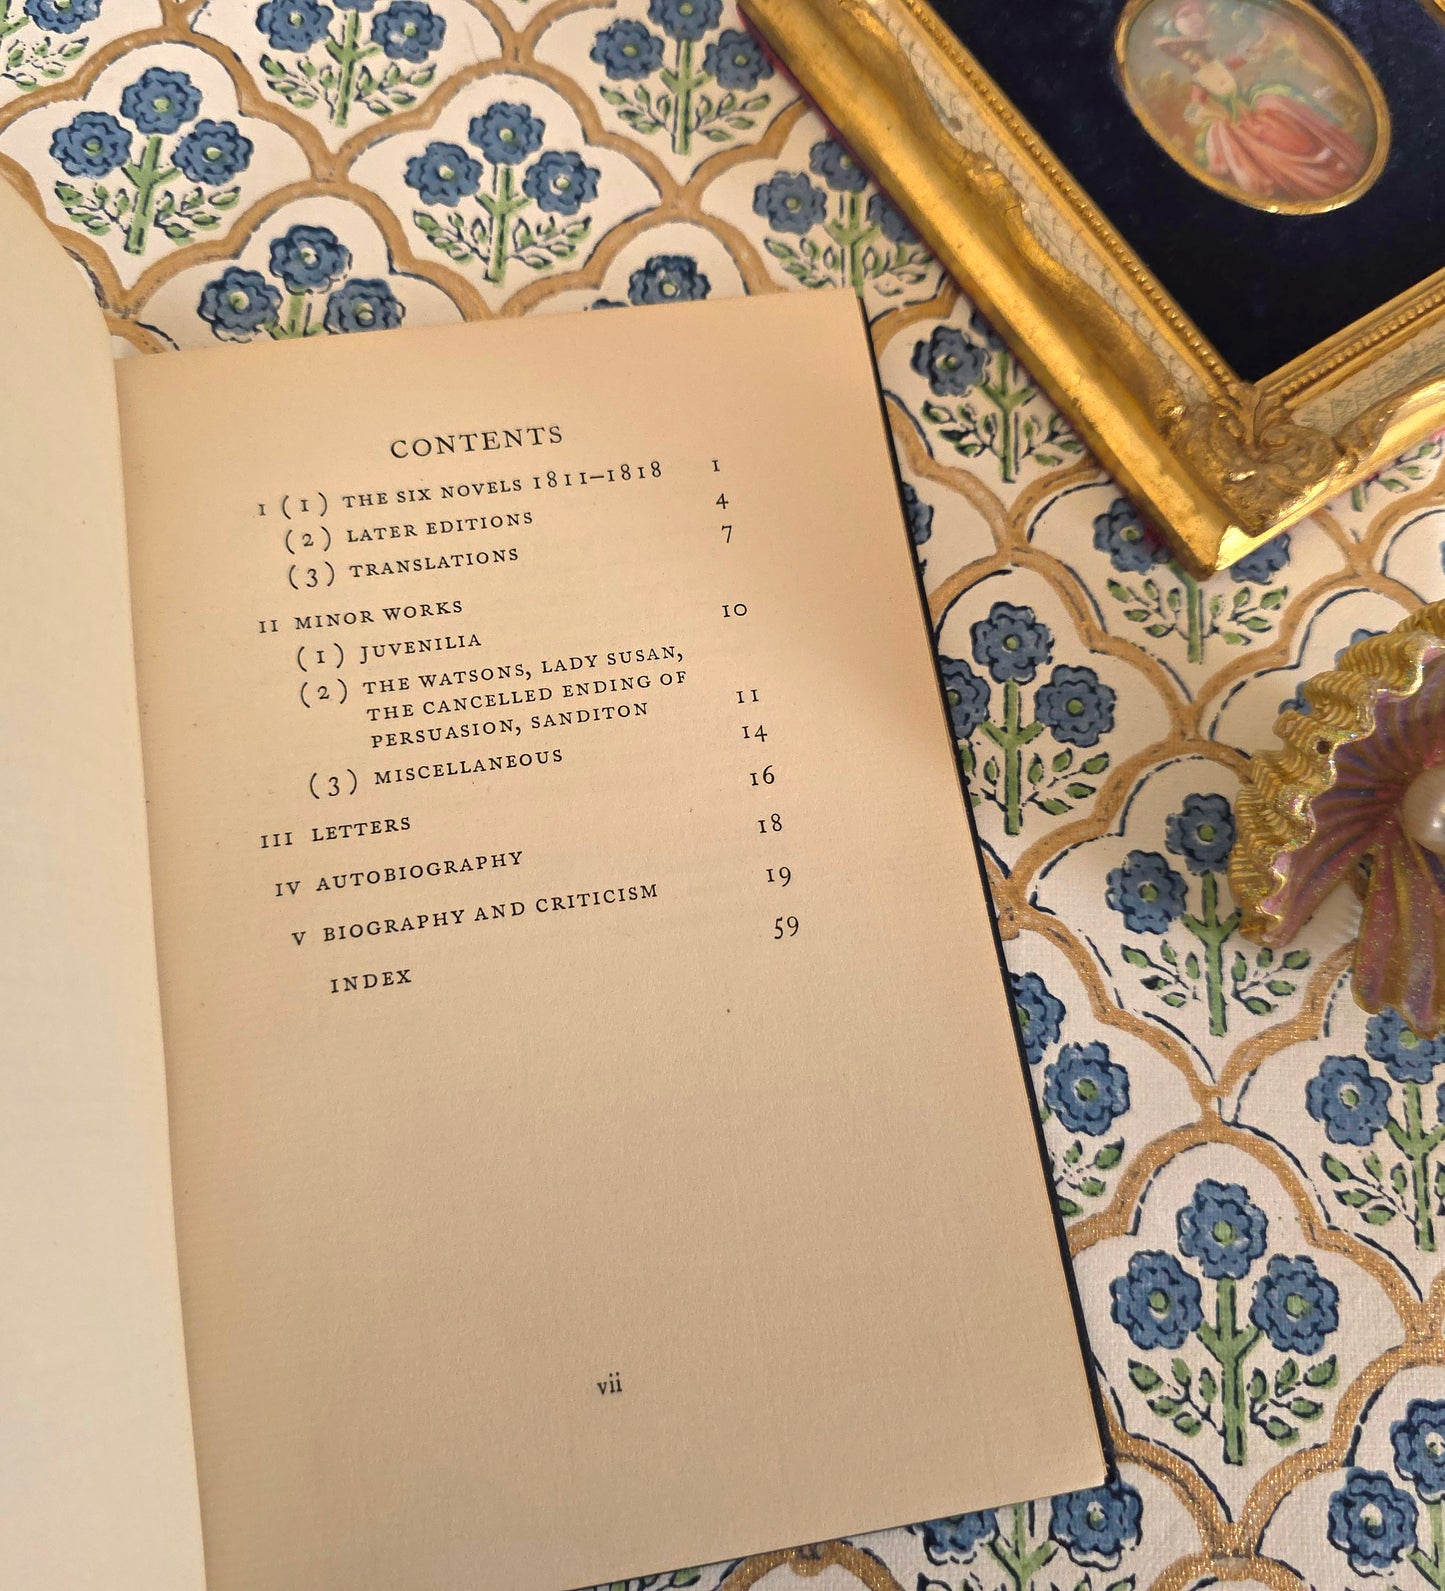 CONTENTS
I (1) THE SIX NOVELS 1811–1818 1
(2) LATER EDITIONS 4
(3) TRANSLATIONS 7
II MINOR WORKS
(1) JUVENILIA 10
(2) THE WATSONS, LADY SUSAN,
THE CANCELLED ENDING OF
PERSUASION, SANDITON 11
(3) MISCELLANEOUS 14
III LETTERS 16
IV AUTOBIOGRAPHY 18
V BIOGRAPHY AND CRITICISM 19
INDEX 59
vii